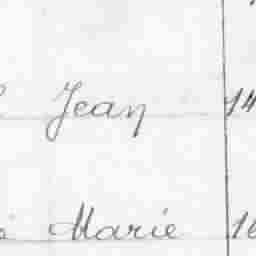 Jean 14
Marie 16